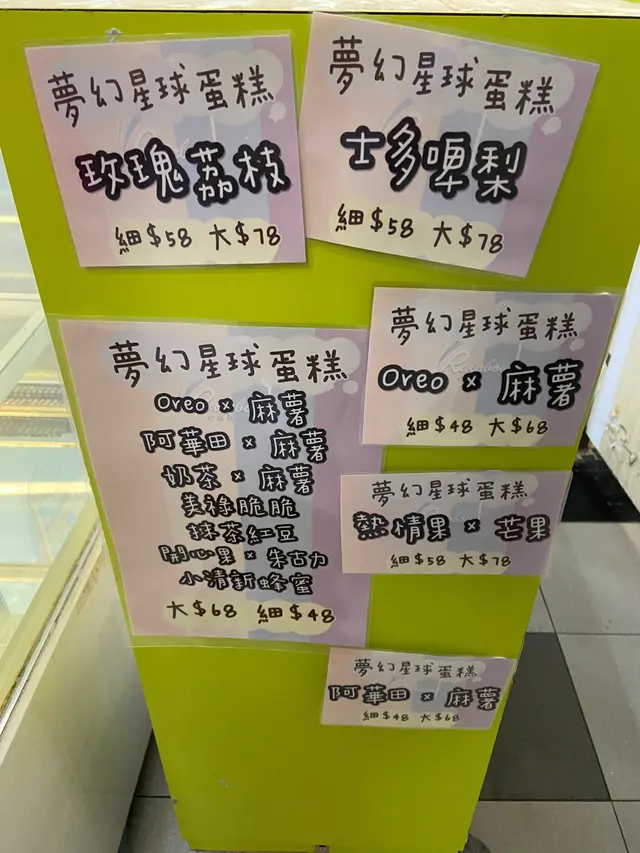 夢幻星球蛋糕
玫瑰荔枝
細$58 大$78
夢幻星球蛋糕
士多啤梨
細$58 大$78
夢幻星球蛋糕
Oreo x 麻薯
阿華田 x 麻薯
奶茶 x 麻薯
美祿脆脆
抹茶紅豆
開心果 x 朱古力
小清新蜂蜜
大$68 細$48
夢幻星球蛋糕
Oreo x 麻薯
細$48 大$68
夢幻星球蛋糕
熱情果 x 芒果
細$58 大$78
夢幻星球蛋糕
阿華田 x 麻薯
細$48 大$68